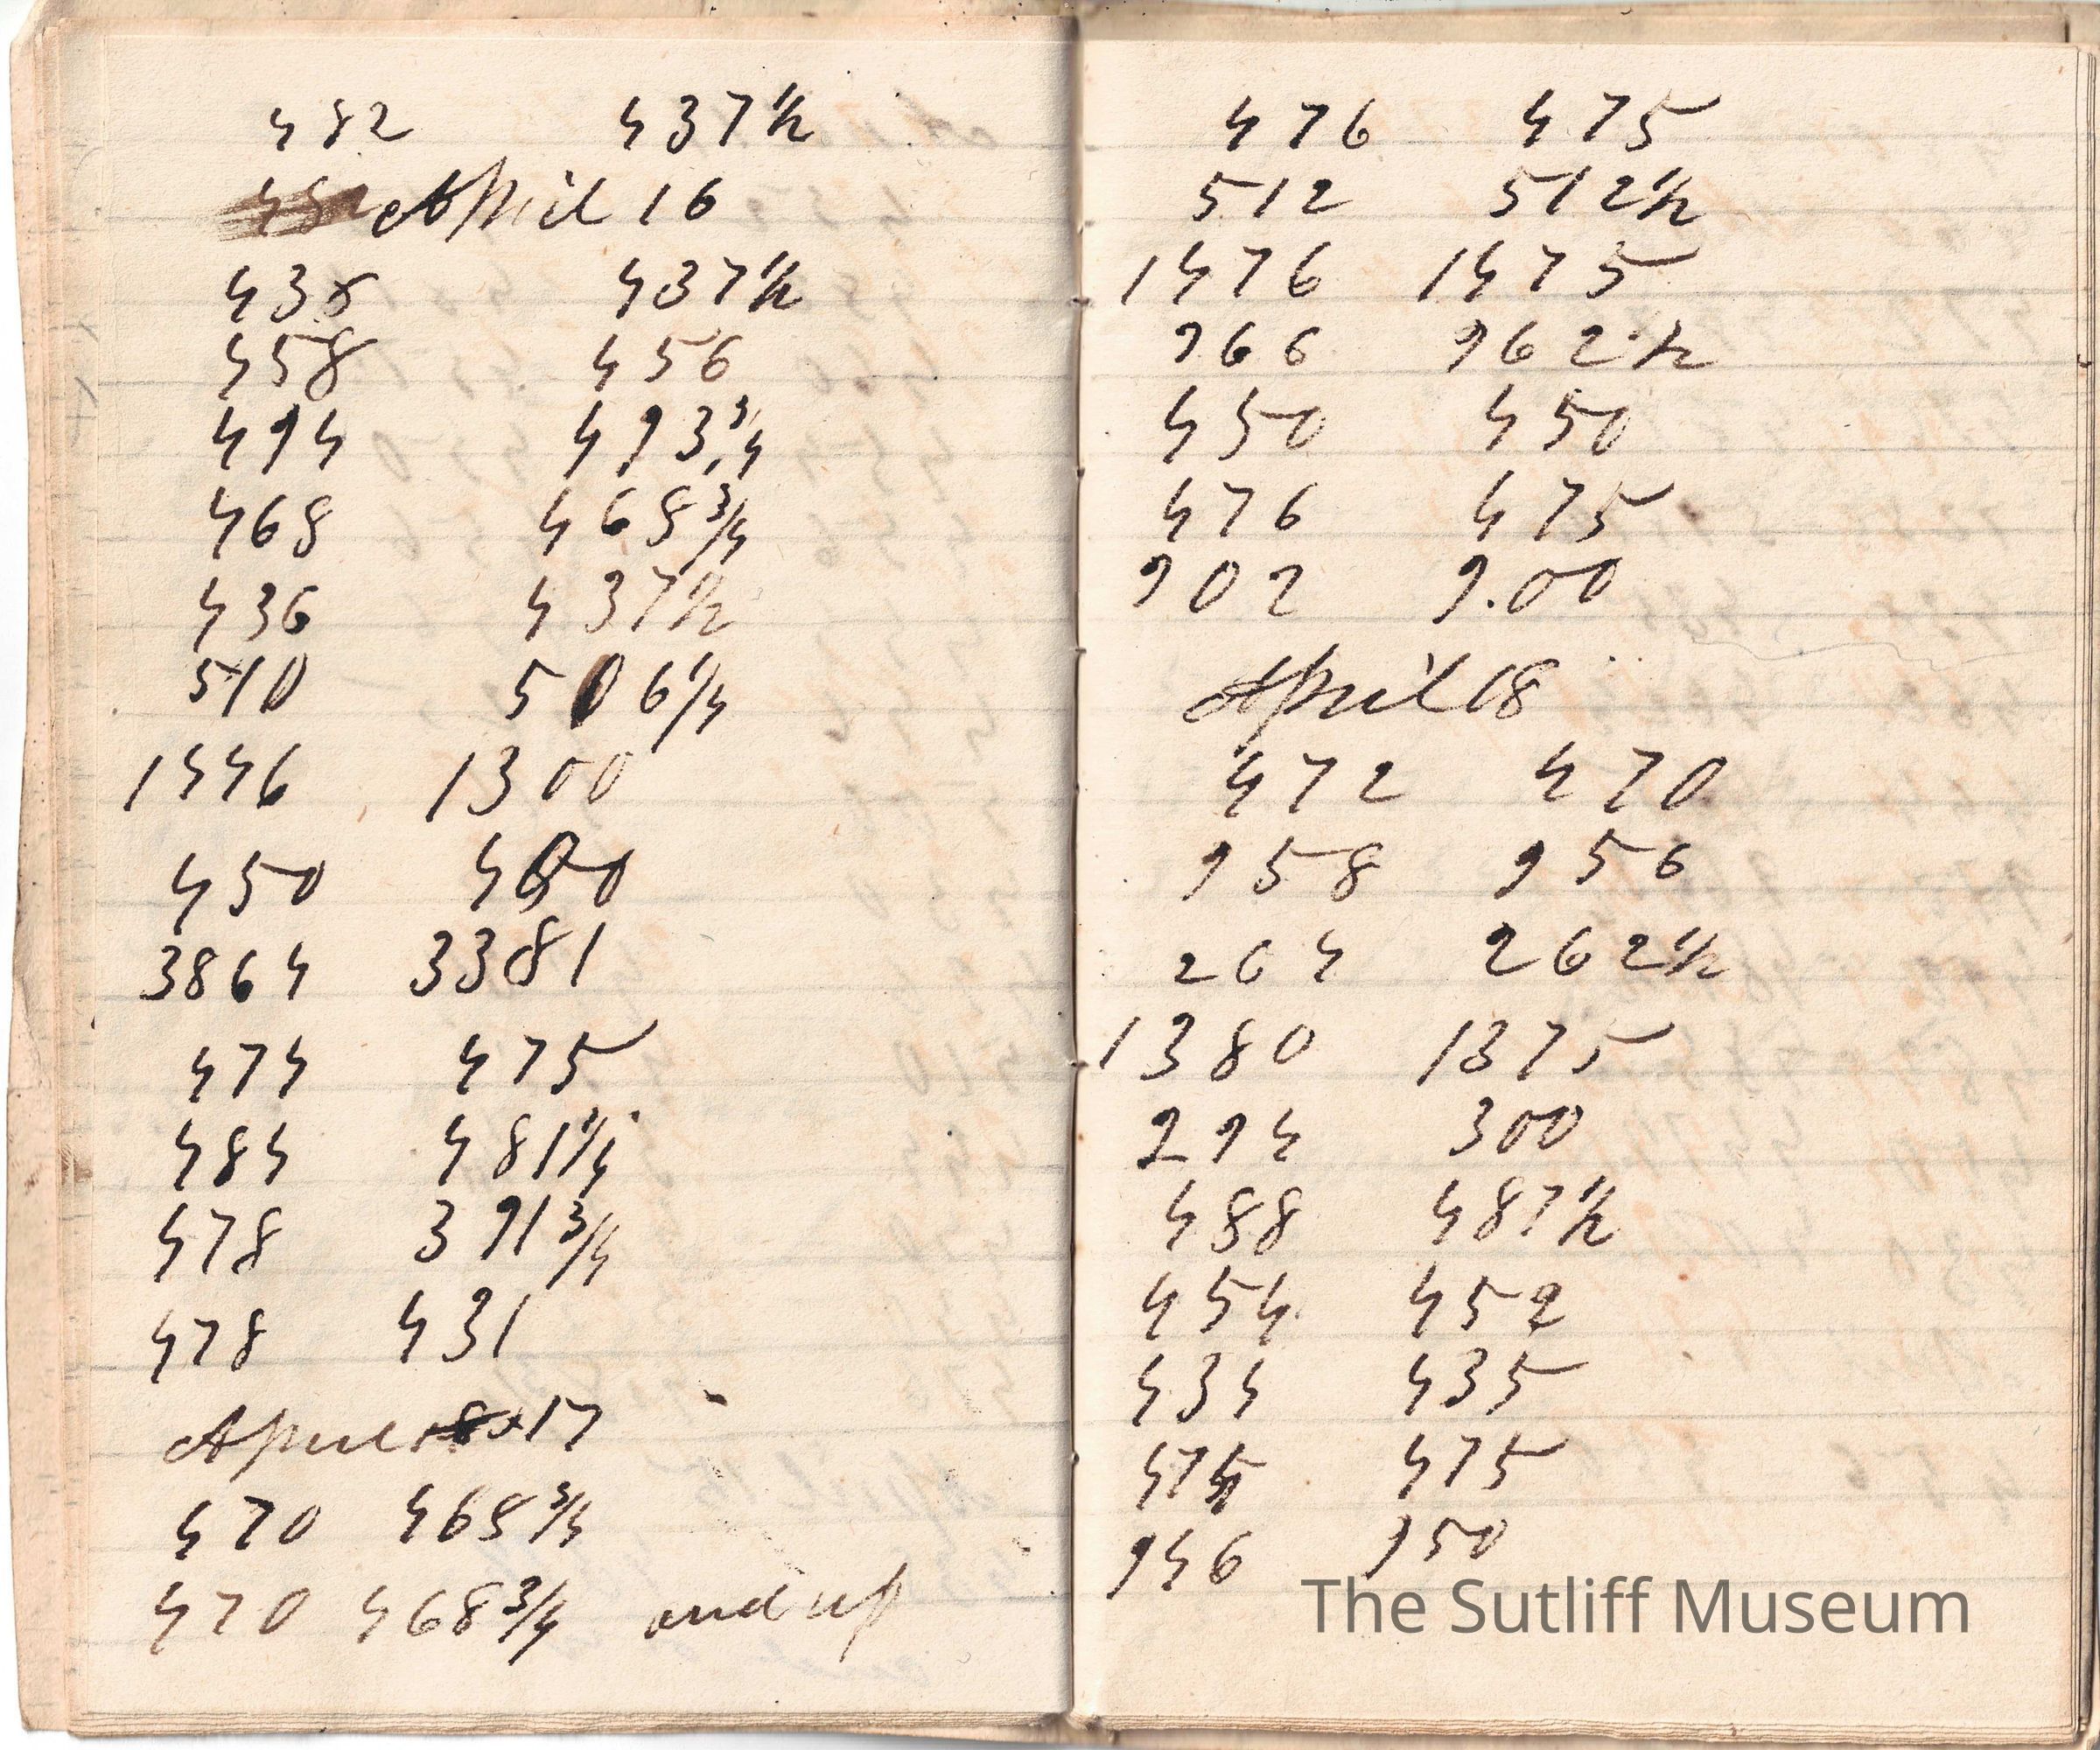 482 437½
April 16
438 437½
458 456
494 493¾
468 468¾
436 437½
510 506¼
1446 1300
450 450
3864 3381
474 475
484 481¼
478 391¾
478 431
April 17
470 468¾
470 468¾ and up
476 475
512 512½
1476 1475
966 962½
450 450
476 475
902 9.00
April 18
472 470
958 956
264 262½
1380 1375
294 300
488 487½
454 452
434 435
474 475
946 950
The Sutliff Museum